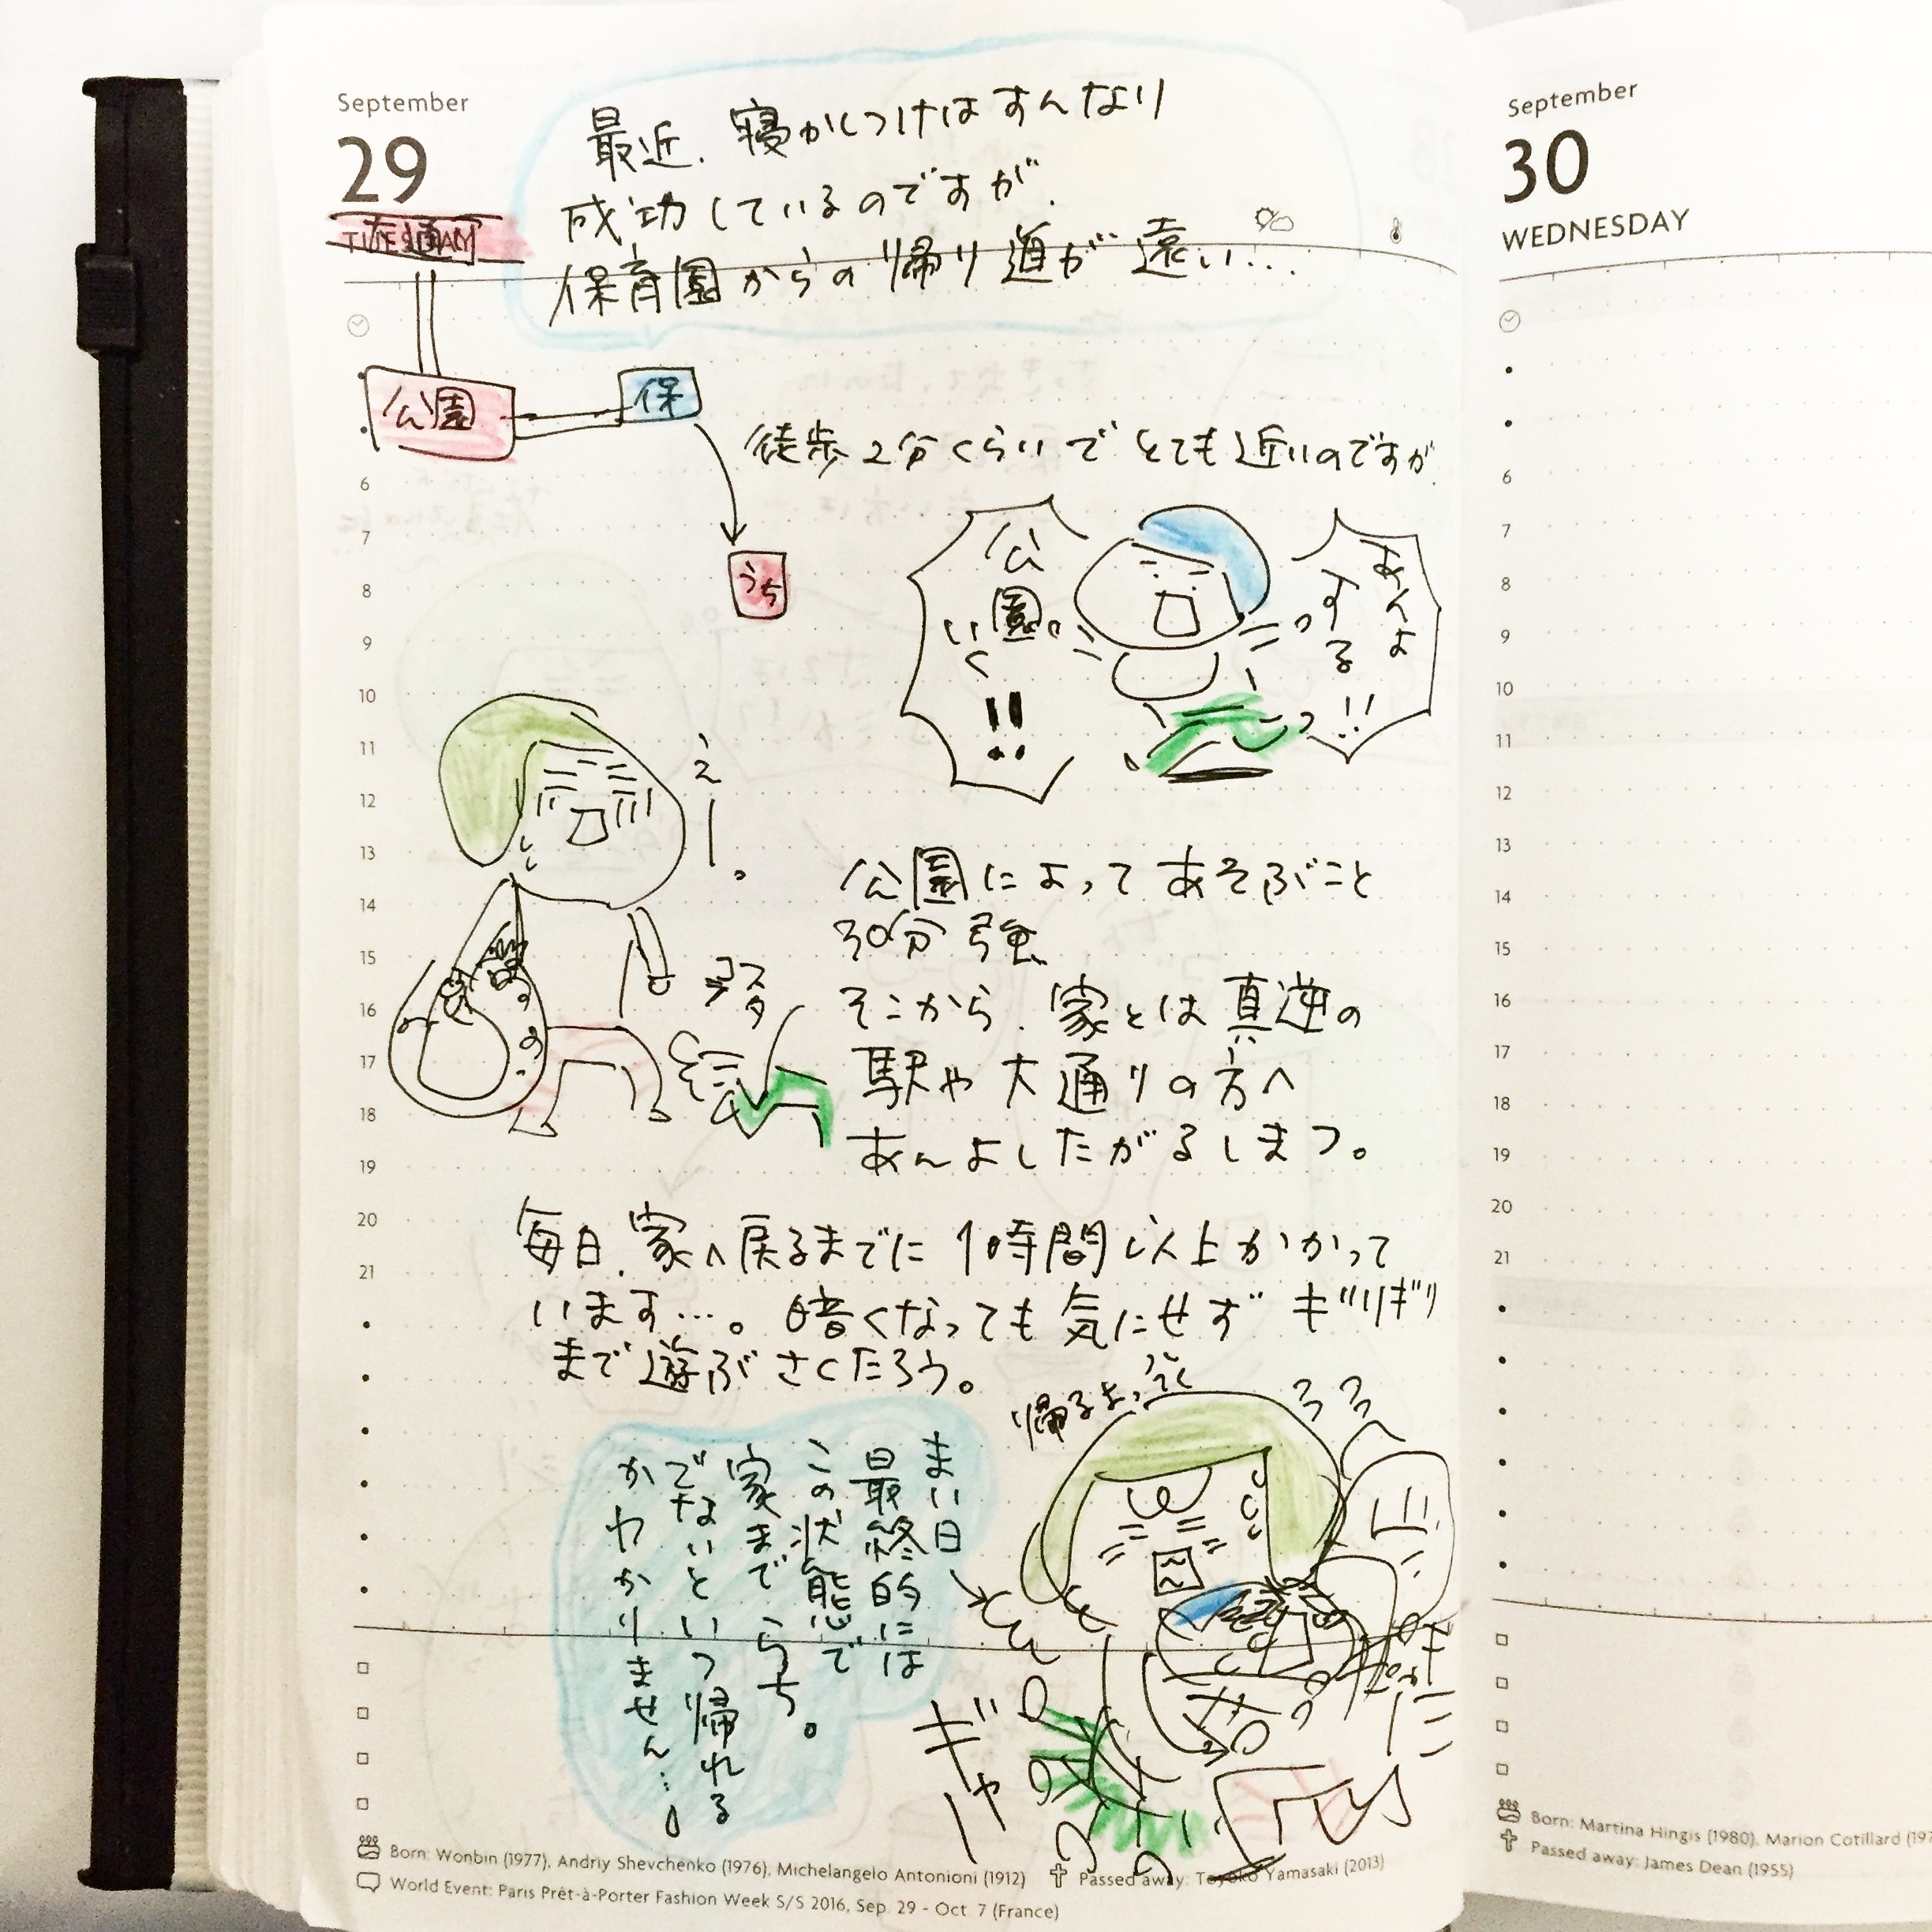 September
29
TUESDAY
最近、寝かしつけはすんなり
成功しているのですが、
保育園からの帰り道が遠い…
公園
保
うち
徒歩2分くらいでとても近いのですが
公園
いく
!!
あんよ
する
!!
えー。
公園によってあそぶこと
30分強、
そこから、家とは真逆の
駅や大通りの方へ
あんよしたがるしまつ。
毎日、家へ戻るまでに1時間以上かかって
います…。暗くなっても気にせずギリギリ
まで遊ぶさくたろう。
帰るよってば
まい日
最終的には
この状態で
家までらち。
でないといつ帰れる
かわかりません…。
ギャー
6
7
8
9
10
11
12
13
14
15
16
17
18
19
20
21
Born: Wonbin (1977), Andriy Shevchenko (1976), Michelangelo Antonioni (1912)
Passed away: Toyoko Yamasaki (2013)
World Event: Paris Prêt-à-Porter Fashion Week S/S 2016, Sep. 29 - Oct. 7 (France)
September
30
WEDNESDAY
6
7
8
9
10
11
12
13
14
15
16
17
18
19
20
21
Born: Martina Hingis (1980), Marion Cotillard
Passed away: James Dean (1955)